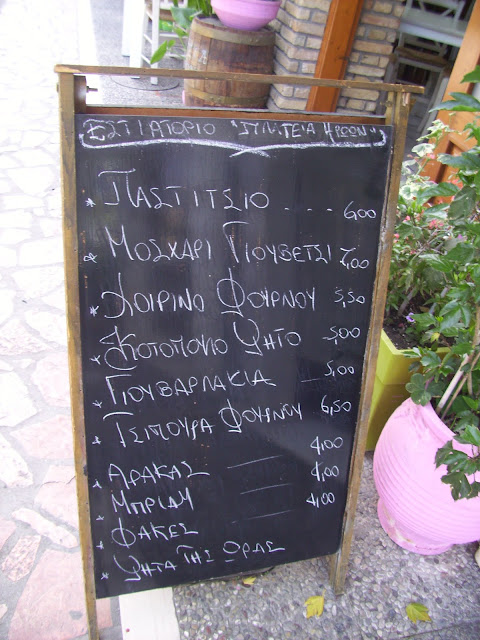 ΕΣΤΙΑΤΟΡΙΟ
* ΠΑΣΤΙΤΣΙΟ .... 6,00
* ΜΟΣΧΑΡΙ ΓΙΟΥΒΕΤΣΙ 7,00
* ΧΟΙΡΙΝΟ ΦΟΥΡΝΟΥ 5,50
* ΚΟΤΟΠΟΥΛΟ ΨΗΤΟ 5,00
* ΓΙΟΥΒΑΡΛΑΚΙΑ — 5,00
* ΤΣΙΠΟΥΡΑ ΦΟΥΡΝΟΥ 6,50
* ΑΡΑΚΑΣ — 4,00
* ΜΠΡΙΑΜ — 4,00
* ΦΑΚΕΣ — 4,00
* ΨΗΤΑ ΤΗΣ ΩΡΑΣ